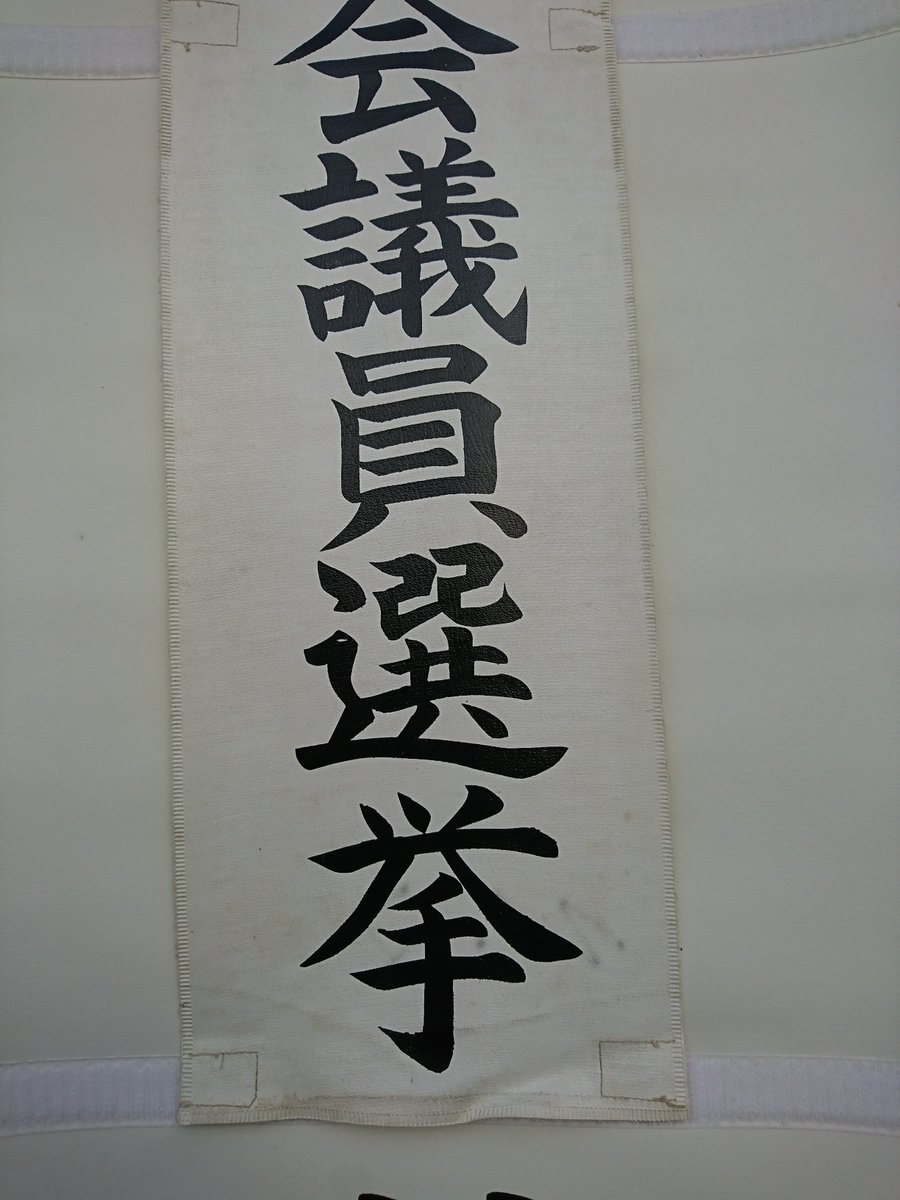 会議員選挙